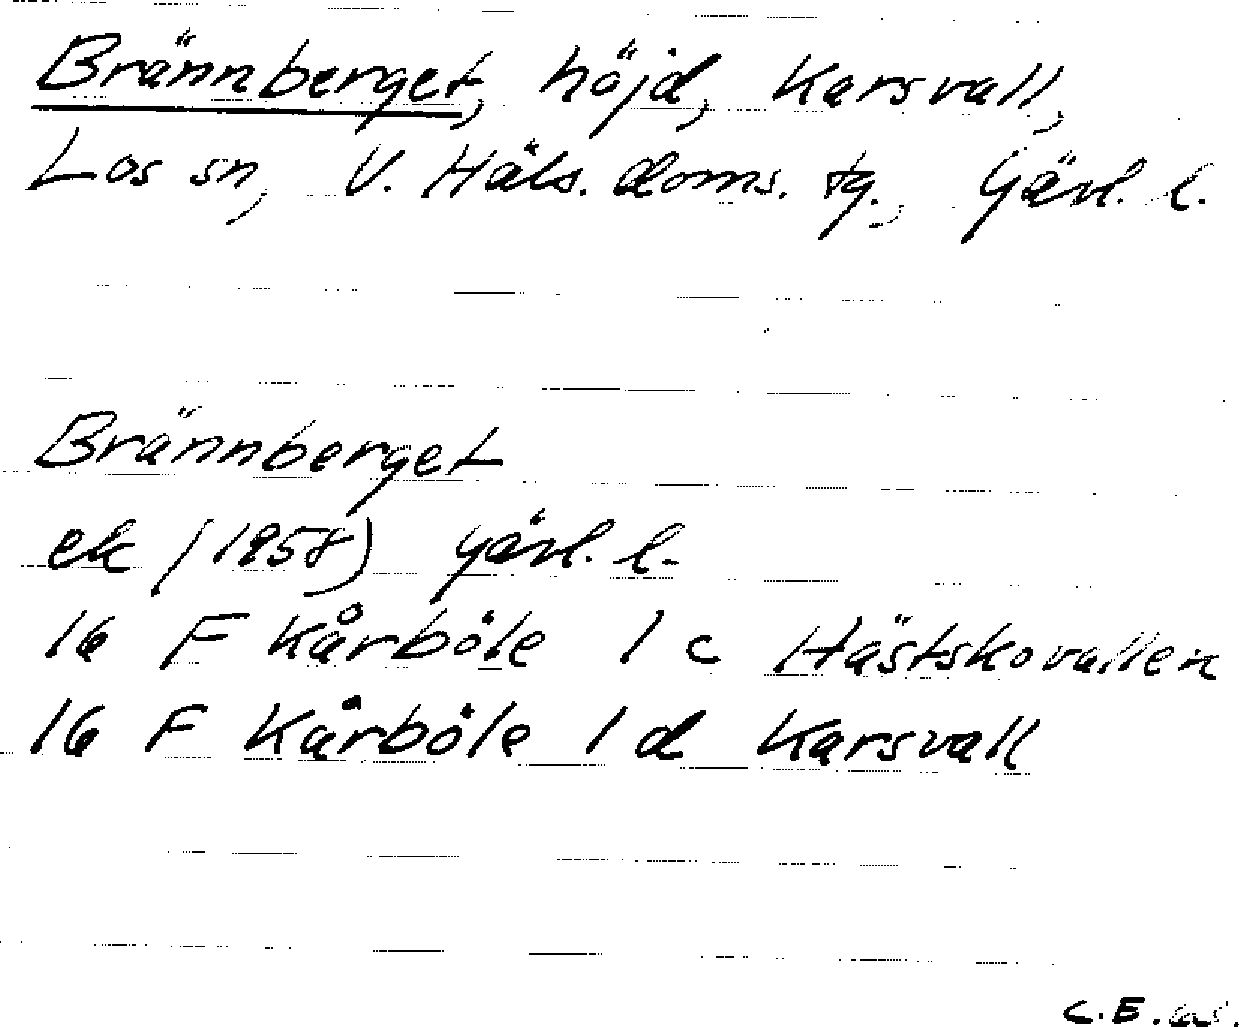 Brännberget, höjd, Karsvall,
Los sn, V. Häls. doms. tg., Gävl. l.
Brännberget
ek (1958) Gävl. l.
16 F Kårböle 1 c Hästskovallen
16 F Kårböle 1 d Karsvall
C.E.